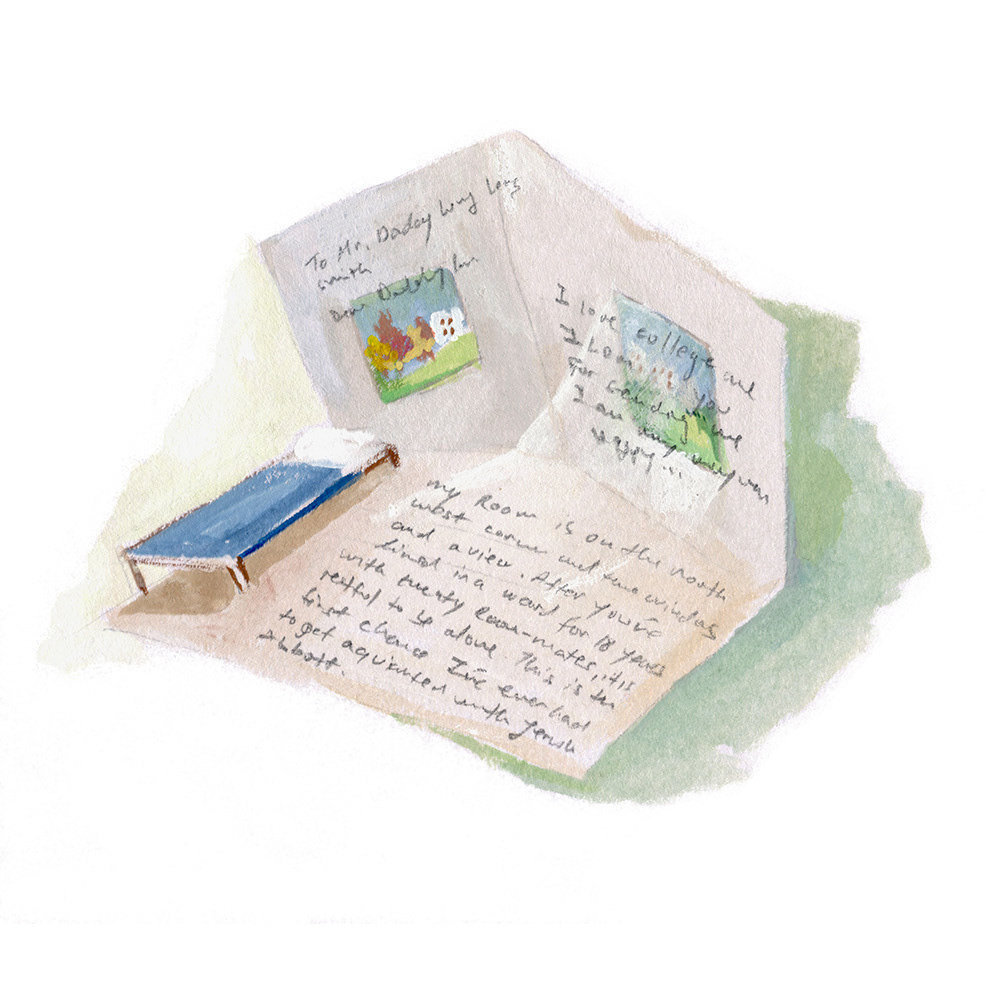 To Mr. Daddy Long Legs
Smith
Dear Daddy
I love college and
I love you
for sending me
I am very very
happy...
My Room is on the north
west corner and two windos
and a view. After you've
lived in a ward for 18 years
with twenty Room-mates, it is
restful to be alone This is the
first chance I've ever had
to get aquinted with Jerush
Abbott.